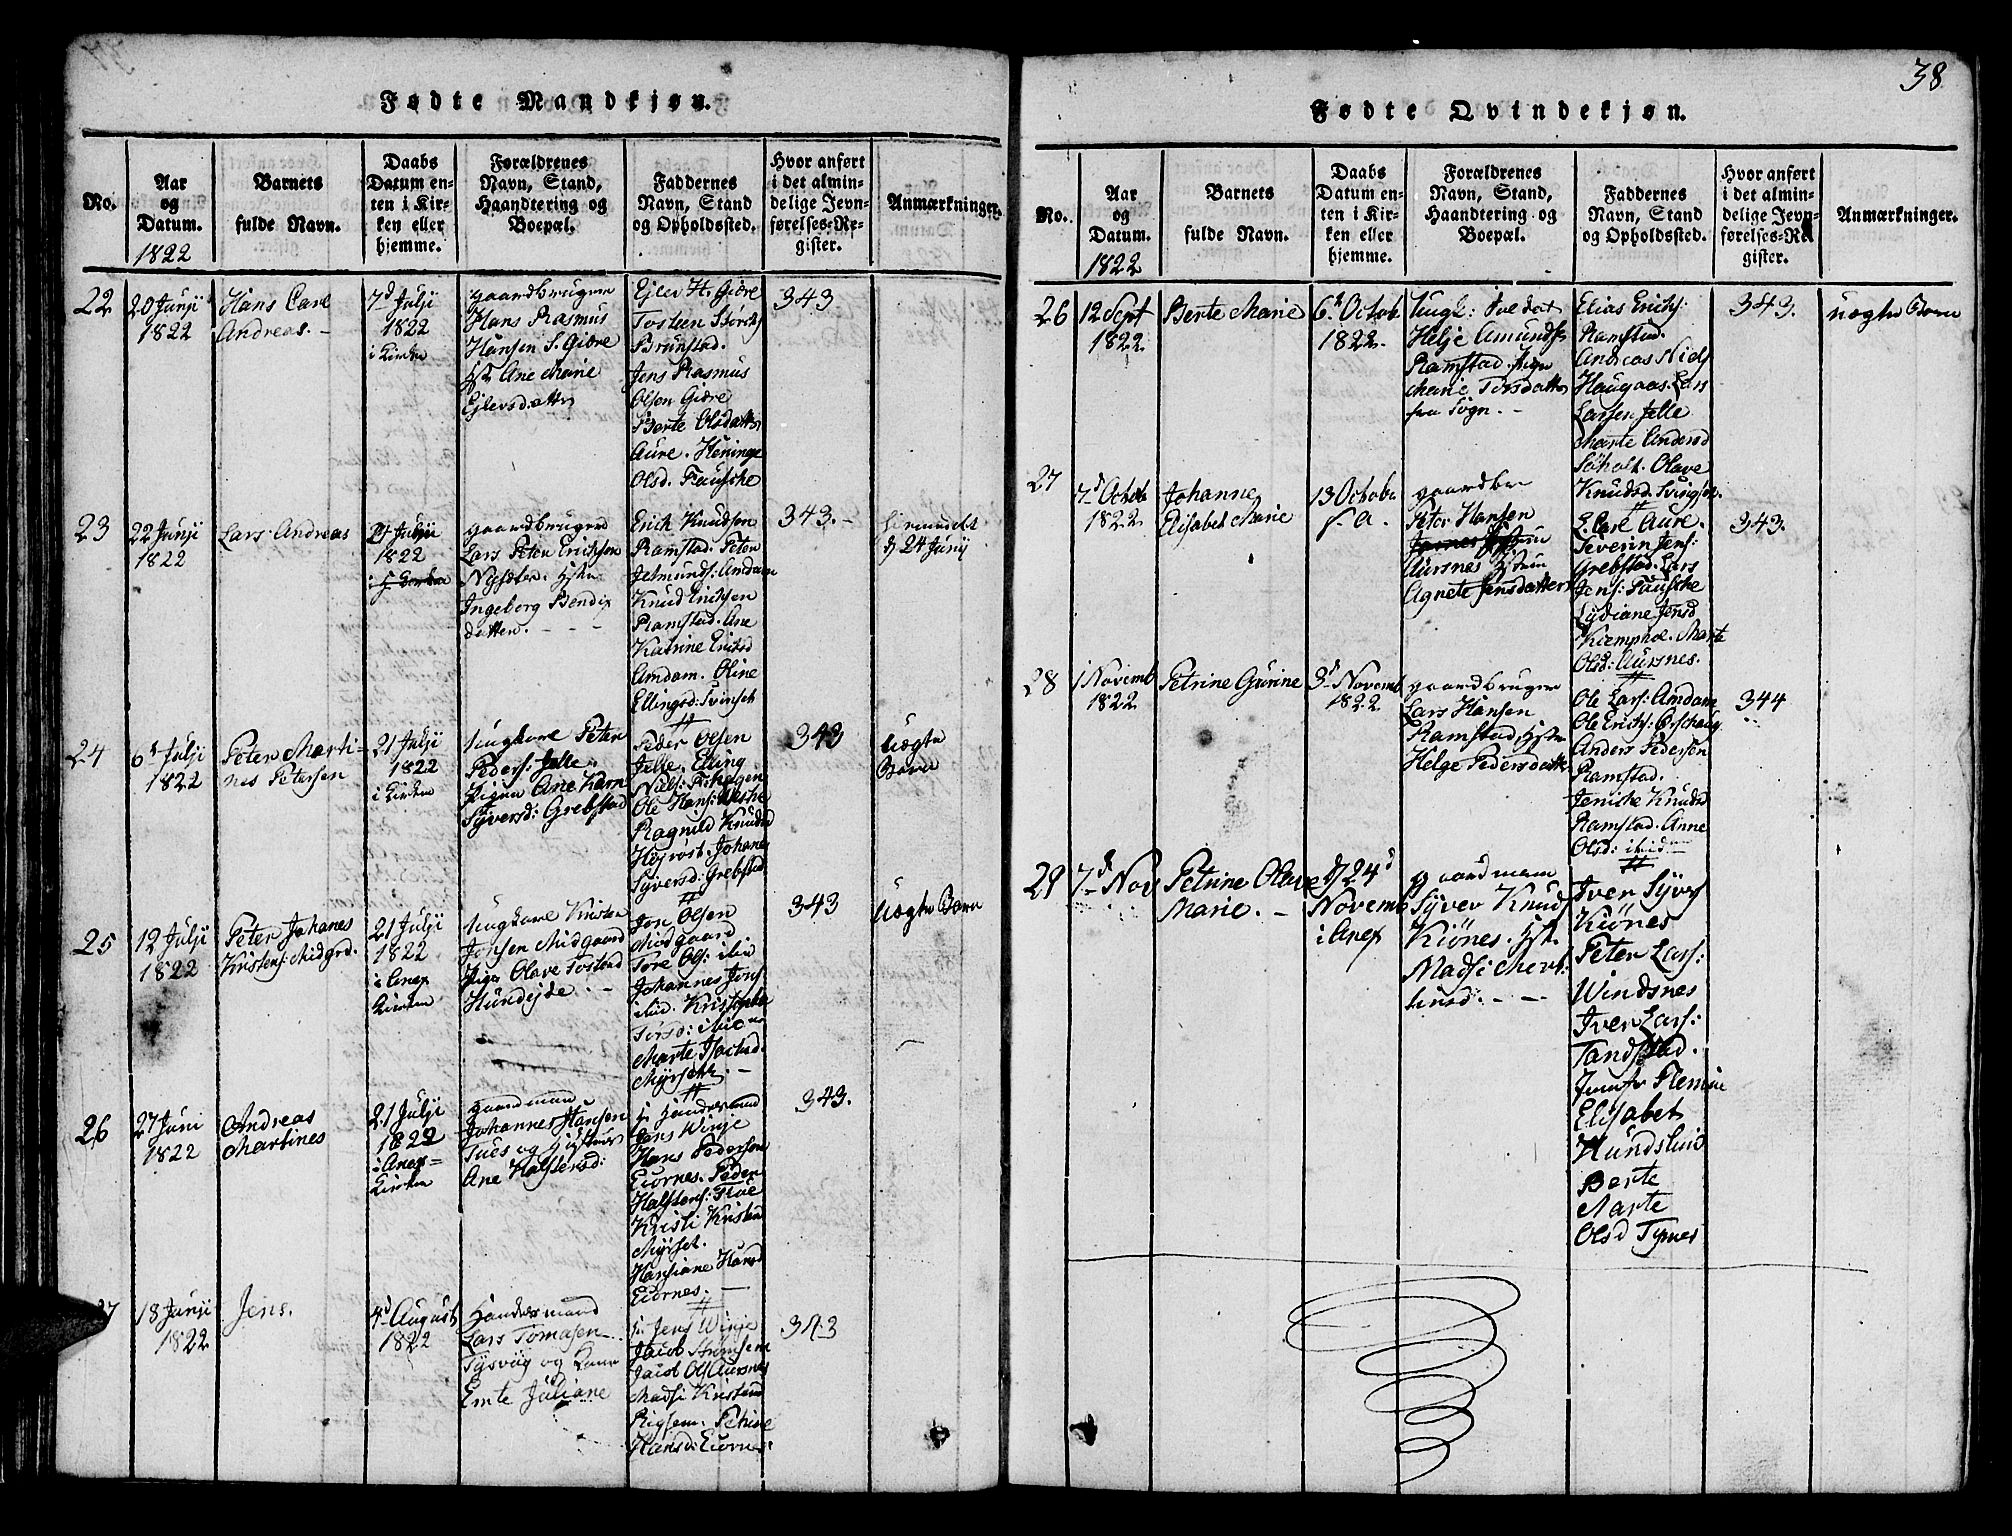 38
Fødte Mandkjøn.
No.
Aar
og
Datum.
1822
Barnets
fulde Navn.
Daabs
Datum en-
ten i Kir-
ken eller
hjemme.
Forældrenes
Navn, Stand,
Haandtering og
Boepæl.
Faddernes
Navn, Stand
og Opholdssted.
Hvor anført
i det almin-
delige Jevn-
førelses-Re-
gister.
Anmærkninger.
22
20 Junji
1822
Hans Carl
Andreas. -
7d Julji
1822
i Kirken
gaardbruger
Hans Rasmus
Hansen S. Giöre
Hst Ane Marie
Ejlersdatter
Ejler H. Giöre
Tosteen
Brunstad.
Jens Rasmus
Olsen Giöre
Berte Olsdatter
Aure. Heninge
Olsd. Fauske
343
23
22 Junji
1822
Lars Andreas
Julji
1822
i Kirken
gaardbruger
Lars Peter Erichsen
Nysæter. Hstr
Ingeborg Bendix
datter. - - -
Erich Knudsen
Ramstad. Peter
Jetmunds: Amdam
Knud Erichsen
Ramstad. Ane
Katrine Erichsd
Amdam. Oline
Ellingsd: Svinset
343. -
d 24 Junij
24
6d Julji
1822
Peter Marti-
nes Petersen
21 Julji
1822
i Kirken
Ungkare Peter
Peders: Jelle.
Pigen Ane Karn
Syversd: Grebstad
Peder Olsen
Jelle. Elling
Niels:
Ole Hans:
Ragnild Knudsd
Højvost. Johane
Syversd: Grebstad
343
Uægte
Barn
25
12 Julji
1822
Peter Johanes
Kristens: Midgrd.
21 Julji
1822
i Anex
Kirken
Ungkare Kristen
Jonsen Midgaard
Pige Olave Tostend
Hundejde. -
Jon Olsen
Midgaard
Tore Ols: ibid
Johannes Jons
ibid. Kristophe
Torsd: ibid
Marte
Myrseth. -
343
Uægte Barn
26
27 Juni
1822
Andreas
Martines
21 Julji
1822
i Anex-
Kirken
gaardmand
Johannes Hansen
Tues og Hustrue
Ane Halstensd:
Jens Winje
Hans Pedersen
Eiornes. Peder
Halstens:
Kristi Kristend
Myrset.
Hansiane Hansd
Eiornes. -
343.
27
18 Junji
1822
Jens.
4d August
1822
Huusmand
Lars Tomasen
Tysvåg og Kone
Emte Juliane
Jens Winje
Jacob
Jacob Ols Aursnes
Madsi Kristend
Hansd: Eiornes
343
Fødte Qvindekjøn.
No.
Aar
og
Datum.
1822
Barnets
fulde Navn.
Daabs
Datum en-
ten i Kir-
ken eller
hjemme.
Forældrenes
Navn, Stand,
Haandtering og
Boepæl.
Faddernes
Navn, Stand
og Opholdssted.
Hvor anført
i det almin-
delige Jevn-
førelses-Re-
gister.
Anmærkninger.
26
12 Sept
1822
Berte Marie
6te Octob
1822.
Ungk: Soldat
Helje Amunds
Ramstad. Pige
Marie Torsdatter
fra Sogn. -
Elias Erichs:
Ramstad.
Andreas Niels
Haugaas. Lars
Larsen Jelle
Marte Andersd
Søholt. Olave
Knudsd. Svingset
343.
uægte Barn
27
7d Octob
1822
Johanne
Elisabet Marie
13 Octobr
s. a.
gaardbr
Peter Hansen
Aursnes Hstru
Agnete Jensdatter
E. Carl Aure.
Severin Jens:
Grebstad. Lars
Jens: Fauske
Lydiane Jensd
Kiemphol. Marte
Olsd: Aursnes.
343.
28
1 Novemb
1822
Petrine Gurine
3d Novemb
1822
gaardbruger
Lars Hansen
Ramstad, Hstr
Helge Pedersdatter
Ole Lars: Amdam
Ole Erichs: Ørschaug
Anders Pedersen
Ramstad.
Jeniche Knudsd
Ramstad. Anne
Olsd: ibidem
344
29
7d Nov
Petrine Olave
Marie. -
d 24d
Novemb
i Anex
gaardmann
Syver Knuds
Kiönes. Hstr
Madsi Mort:
Iver Syvers
Kiönes
Peter Lars:
Windsnes
Iver Lars:
Tandstad.
Jomfr Flemin
Elisabet
Hundsluid
Berte
Marte
Olsd Tynes